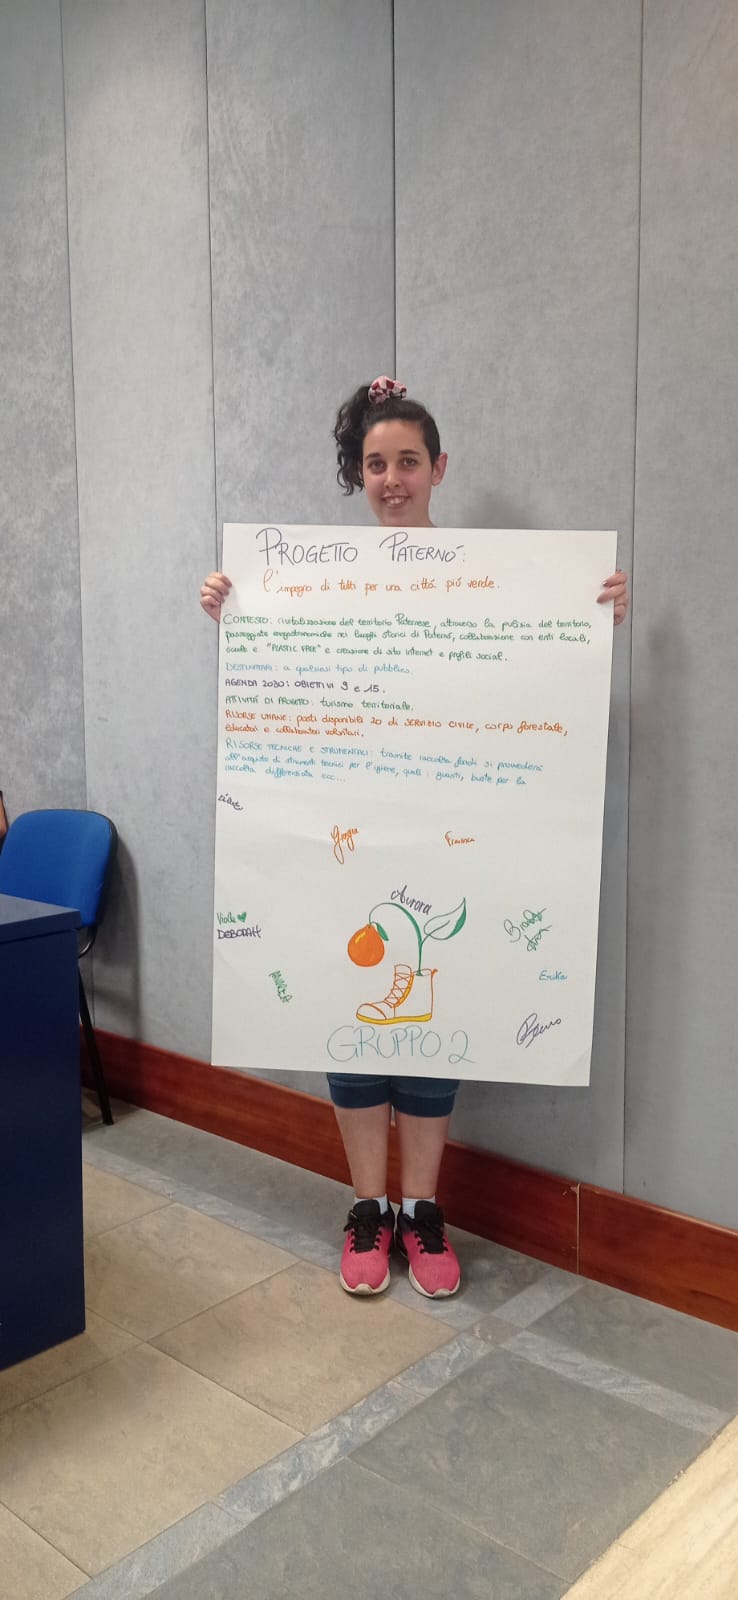 PROGETTO PATERNÓ:
l'impegno di tutti per una cittá piú verde.
CONTESTO: rivitalizzazione del territorio Paternese, attraverso la pulizia del territorio,
passeggiate enogastronomiche nei luoghi storici di Paternó, collaborazione con enti locali,
scuole e "PLASTIC FREE" e creazione di sito internet e profili social.
DESTINATARI: a qualsiasi tipo di pubblico.
AGENDA 2030: OBIETTIVI 9 e 15.
ATTIVITÁ DI PROGETTO: turismo territoriale.
RISORSE UMANE: posti disponibili 20 di SERVIZIO CIVILE, corpo forestale,
educatori e collaboratori volontari.
RISORSE TECNICHE E STRUMENTALI: tramite raccolta fondi si provvederá
all'acquisto di strumenti tecnici per l'igiene, quali: guanti, buste per la
raccolta differenziata ecc...
Giorgia
Francesca
Aurora
Viola
DEBORAH
ANDREA
Erika
GRUPPO 2